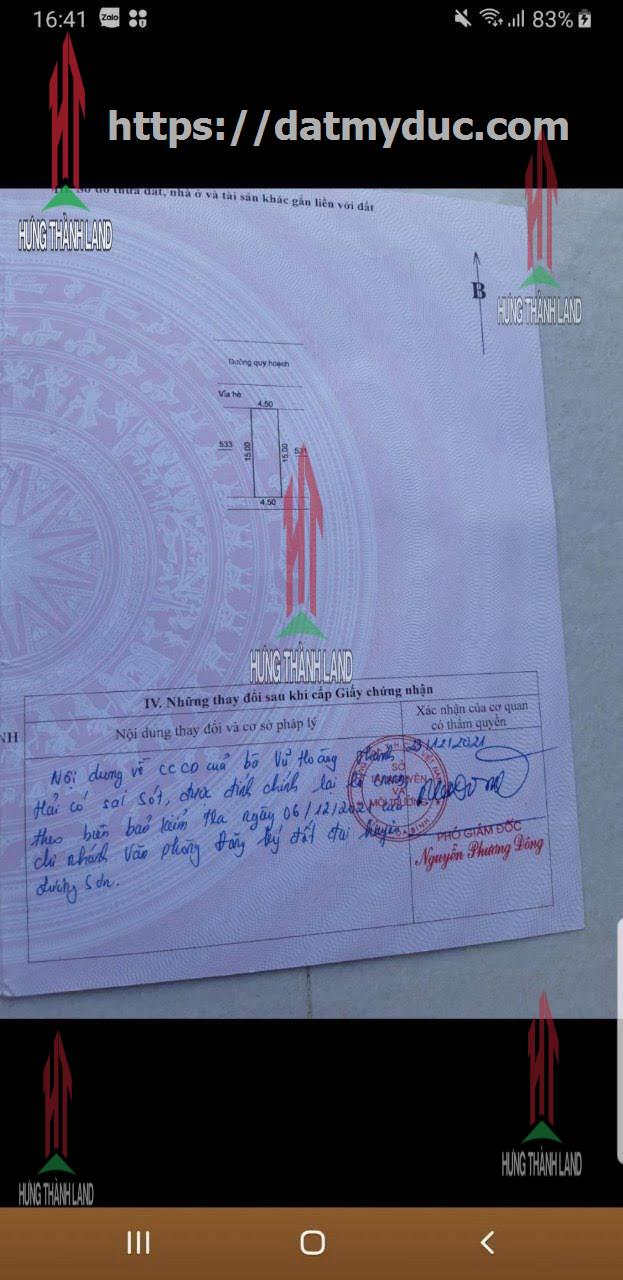 16:41 Zalo 83%
https://datmyduc.com
III. Sơ đồ thửa đất, nhà ở và tài sản khác gắn liền với đất
HƯNG THÀNH LAND
HƯNG THÀNH LAND
B
Đường quy hoạch
Vỉa hè
4.50
533 15.00 15.00 531
4.50
HƯNG THÀNH LAND
IV. Những thay đổi sau khi cấp Giấy chứng nhận
NH
Nội dung thay đổi và cơ sở pháp lý
Xác nhận của cơ quan
có thẩm quyền
Nội dung về CCCD của bà Vũ Hoàng
Hải có sai sót, được đính chính lại
theo biên bản kiểm tra ngày 06/12/2021 của
chi nhánh Văn phòng Đăng ký đất đai huyện
Lương Sơn.
23/12/2021
SỞ
TÀI NGUYÊN
VÀ
MÔI TRƯỜNG
PHÓ GIÁM ĐỐC
Nguyễn Phương Đông
HƯNG THÀNH LAND
HƯNG THÀNH LAND